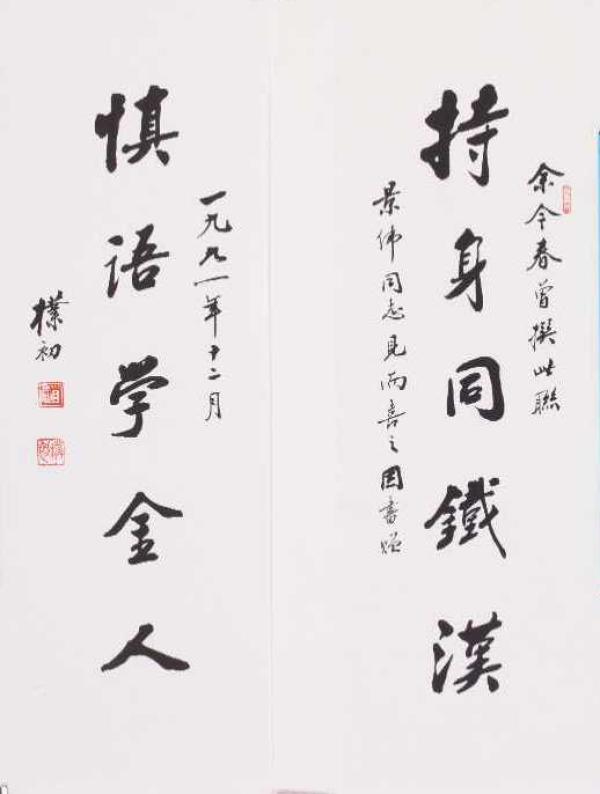 余今春曾撰此聯
持身同鐵漢
景伟同志見而喜之因書贈
一九九一年十二月
慎语学金人
樸初